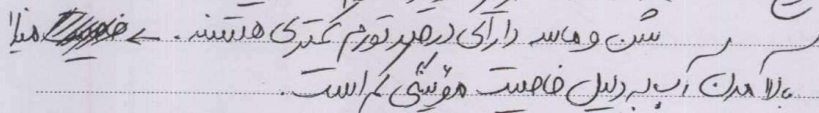 شن و ماسه دارای درصد تورم کمتری هستند. ← مثلا
بالا آمدن آب به دلیل خاصیت موئینگی کم است.